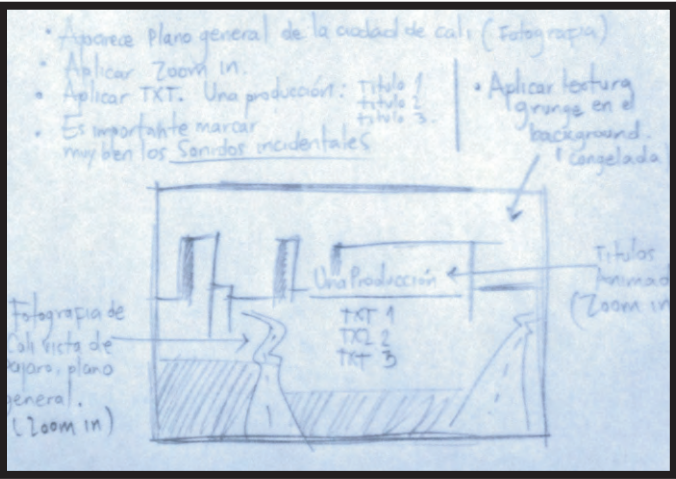 • Aparece Plano general de la ciudad de cali (Fotografia)
• Aplicar Zoom in.
• Aplicar TXT. Una producción: Titulo 1
titulo 2
titulo 3.
• Es importante marcar
muy bien los Sonidos incidentales
• Aplicar textura
grunge en el
background.
congelada
Titulos
Animad
(Zoom in
Una Producción
TXT 1
TX 2
TXT 3
Fotografia de
Cali vista de
pajaro, plano
general.
(Zoom in)